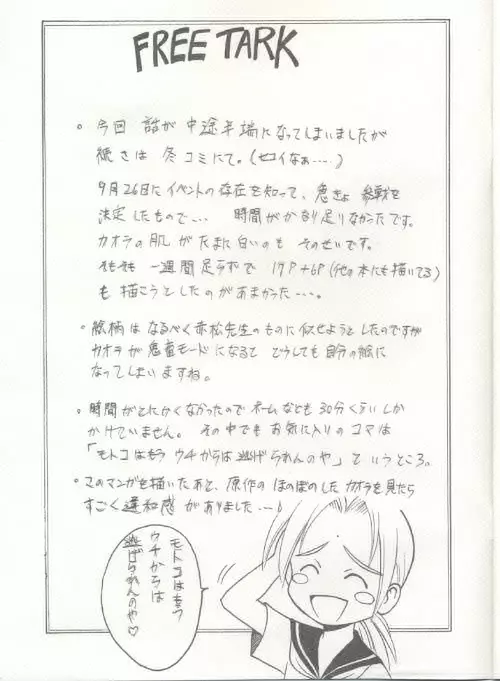 FREE TARK
。今回 話が中途半端になってしまいましたが
続きは冬コミにて。(セコイなぁ……)
9月26日にイベントの存在を知って、急きょ 参戦を
決定したもので… 時間がかなり足りなかたです。
カオラの肌がたまに白いのも そのせいです。
そもそも 一週間足らずで 17P+6P(他の本にも描いてる)
も描こうとしたのがあまかった…。
。絵柄はなるべく赤松先生のものに似せようとしたのですが
カオラが悪童モードになると どうしても自分の絵に
なってしまいますね。
。時間がとにかくなかったので ネームなども30分くらいしか
かけていません。 その中でもお気に入りのコマは
「モトコはもう ウチからは逃げられんのや」というところ。
。このマンガを描いたあと、原作のほのぼのしたカオラを見たら
すごく違和感がありました…♪
モトコはもう
ウチからは
逃げられんのや♡